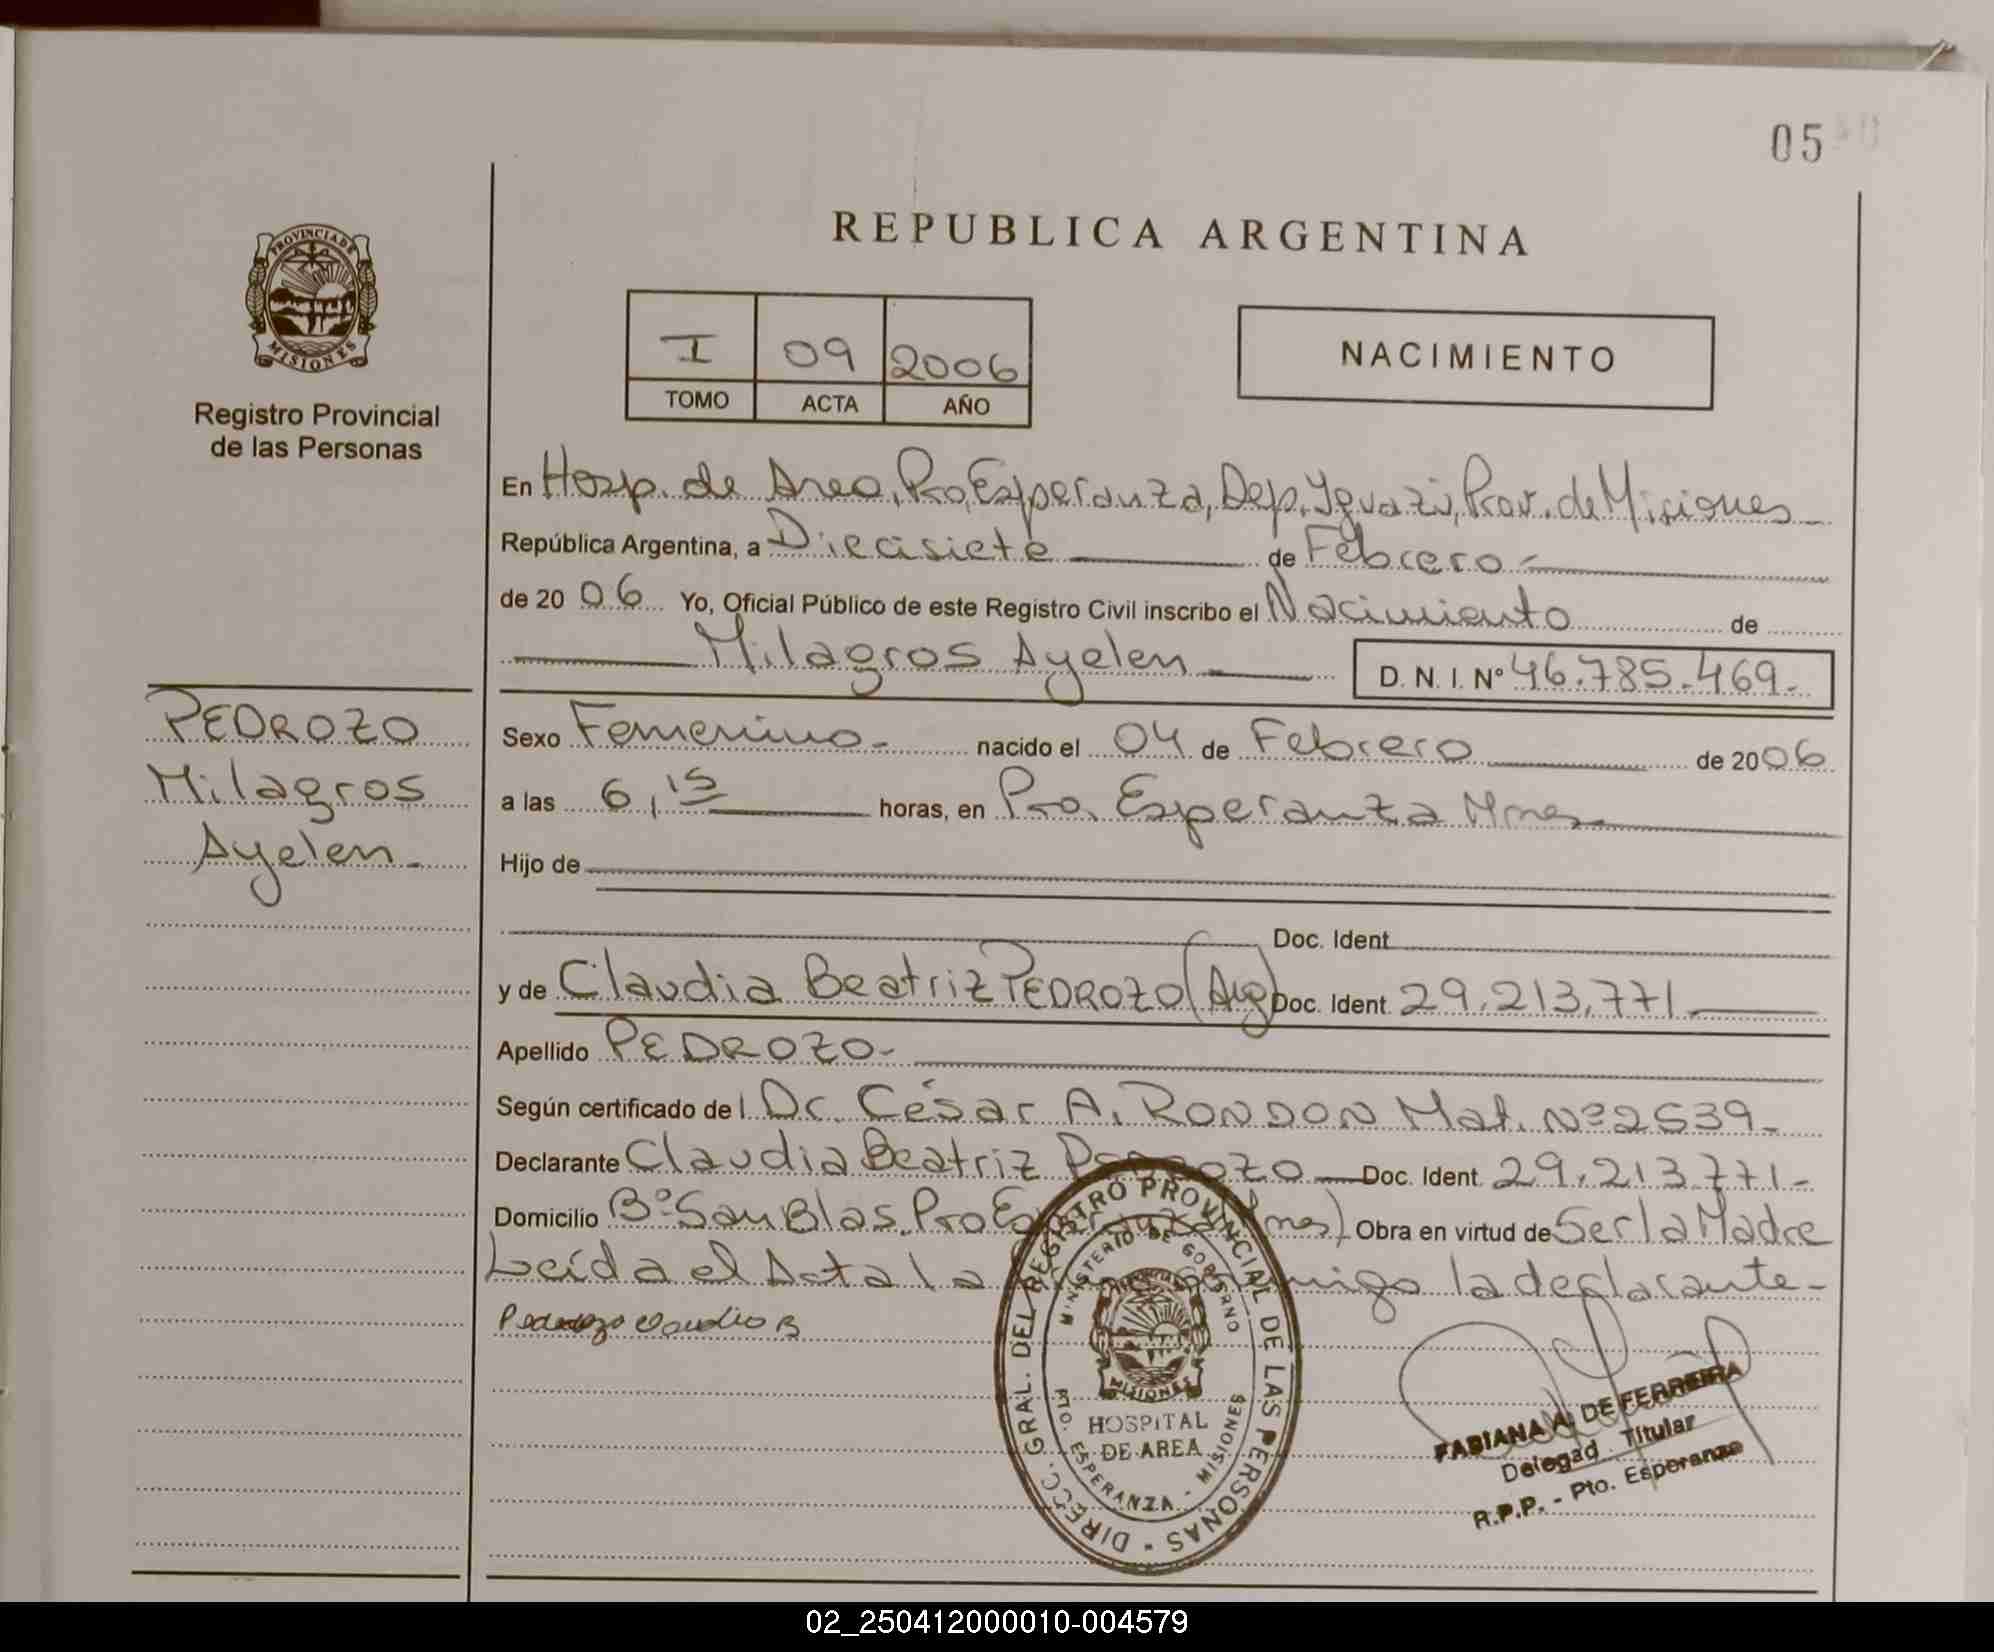 05
PROVINCIA DE
MISIONES
Registro Provincial
de las Personas
REPUBLICA ARGENTINA
I 09 2006
TOMO ACTA AÑO
NACIMIENTO
En Hosp. de Area, Pto, Esperanza, Dep. Iguazú, Prov. de Misiones
República Argentina, a Diecisiete de Febrero
de 20 06 Yo, Oficial Público de este Registro Civil inscribo el Nacimiento de
Milagros Ayelen D. N. I. Nº 46.785.469.-
PEDROZO
Milagros
Ayelen-
Sexo Femenino- nacido el 04 de Febrero de 2006
a las 6,15 horas, en Pto. Esperanza Mnes
Hijo de
Doc. Ident
y de Claudia Beatriz PEDROZO (Arg) Doc. Ident. 29.213.771
Apellido PEDROZO-
Según certificado del Dr. César A. RONDON Mat. Nº 2539-
Declarante Claudia Beatriz Pedrozo Doc. Ident. 29.213.771-
Domicilio Bº San Blas, Pto Esperanza (Mnes) Obra en virtud de Ser la Madre
Leída el Acta la conmigo la declarante-
Pedrozo Claudia B
DIRECC. GRAL. DEL REGISTRO PROVINCIAL DE LAS PERSONAS -
MINISTERIO DE GOBIERNO
MISIONES
HOSPITAL
DE AREA
PTO. ESPERANZA - MISIONES
FABIANA A. DE FERREIRA
Delegad Titular
R.P.P. - Pto. Esperanza
02_250412000010-004579